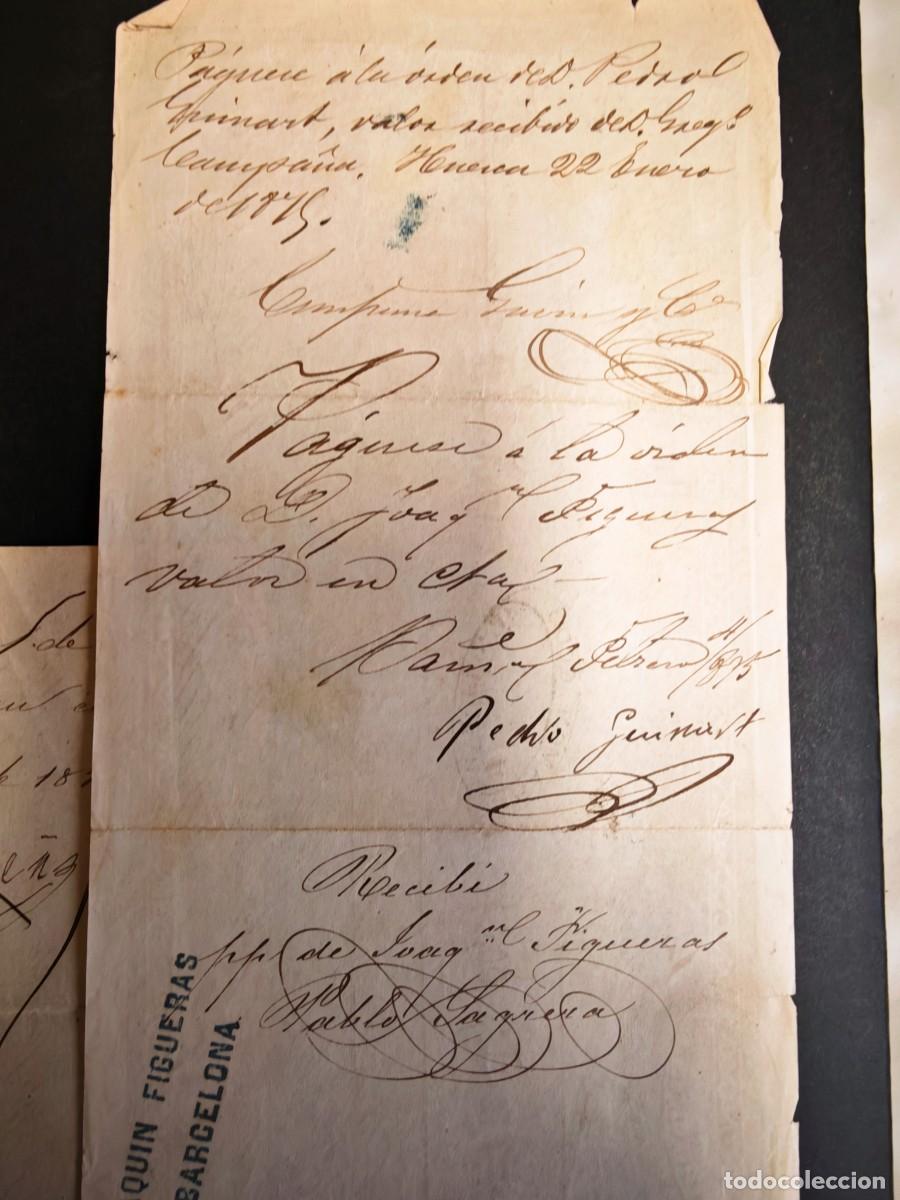 Páguese á la órden de D. Pedro
Guimart, valor recibido de D. Greg.º
Campaña. Huesca 22 Enero
de 1875.
Campana y Cª
Páguese á la órden
de D. Joaq.n Figueras
valor en cta
Febrero 4/875
Pedro Guimart
Recibí
pp de Joaq.n Figueras
Pablo Sagrera
QUIN FIGUERAS
BARCELONA
de
de 187
eña
todocoleccion